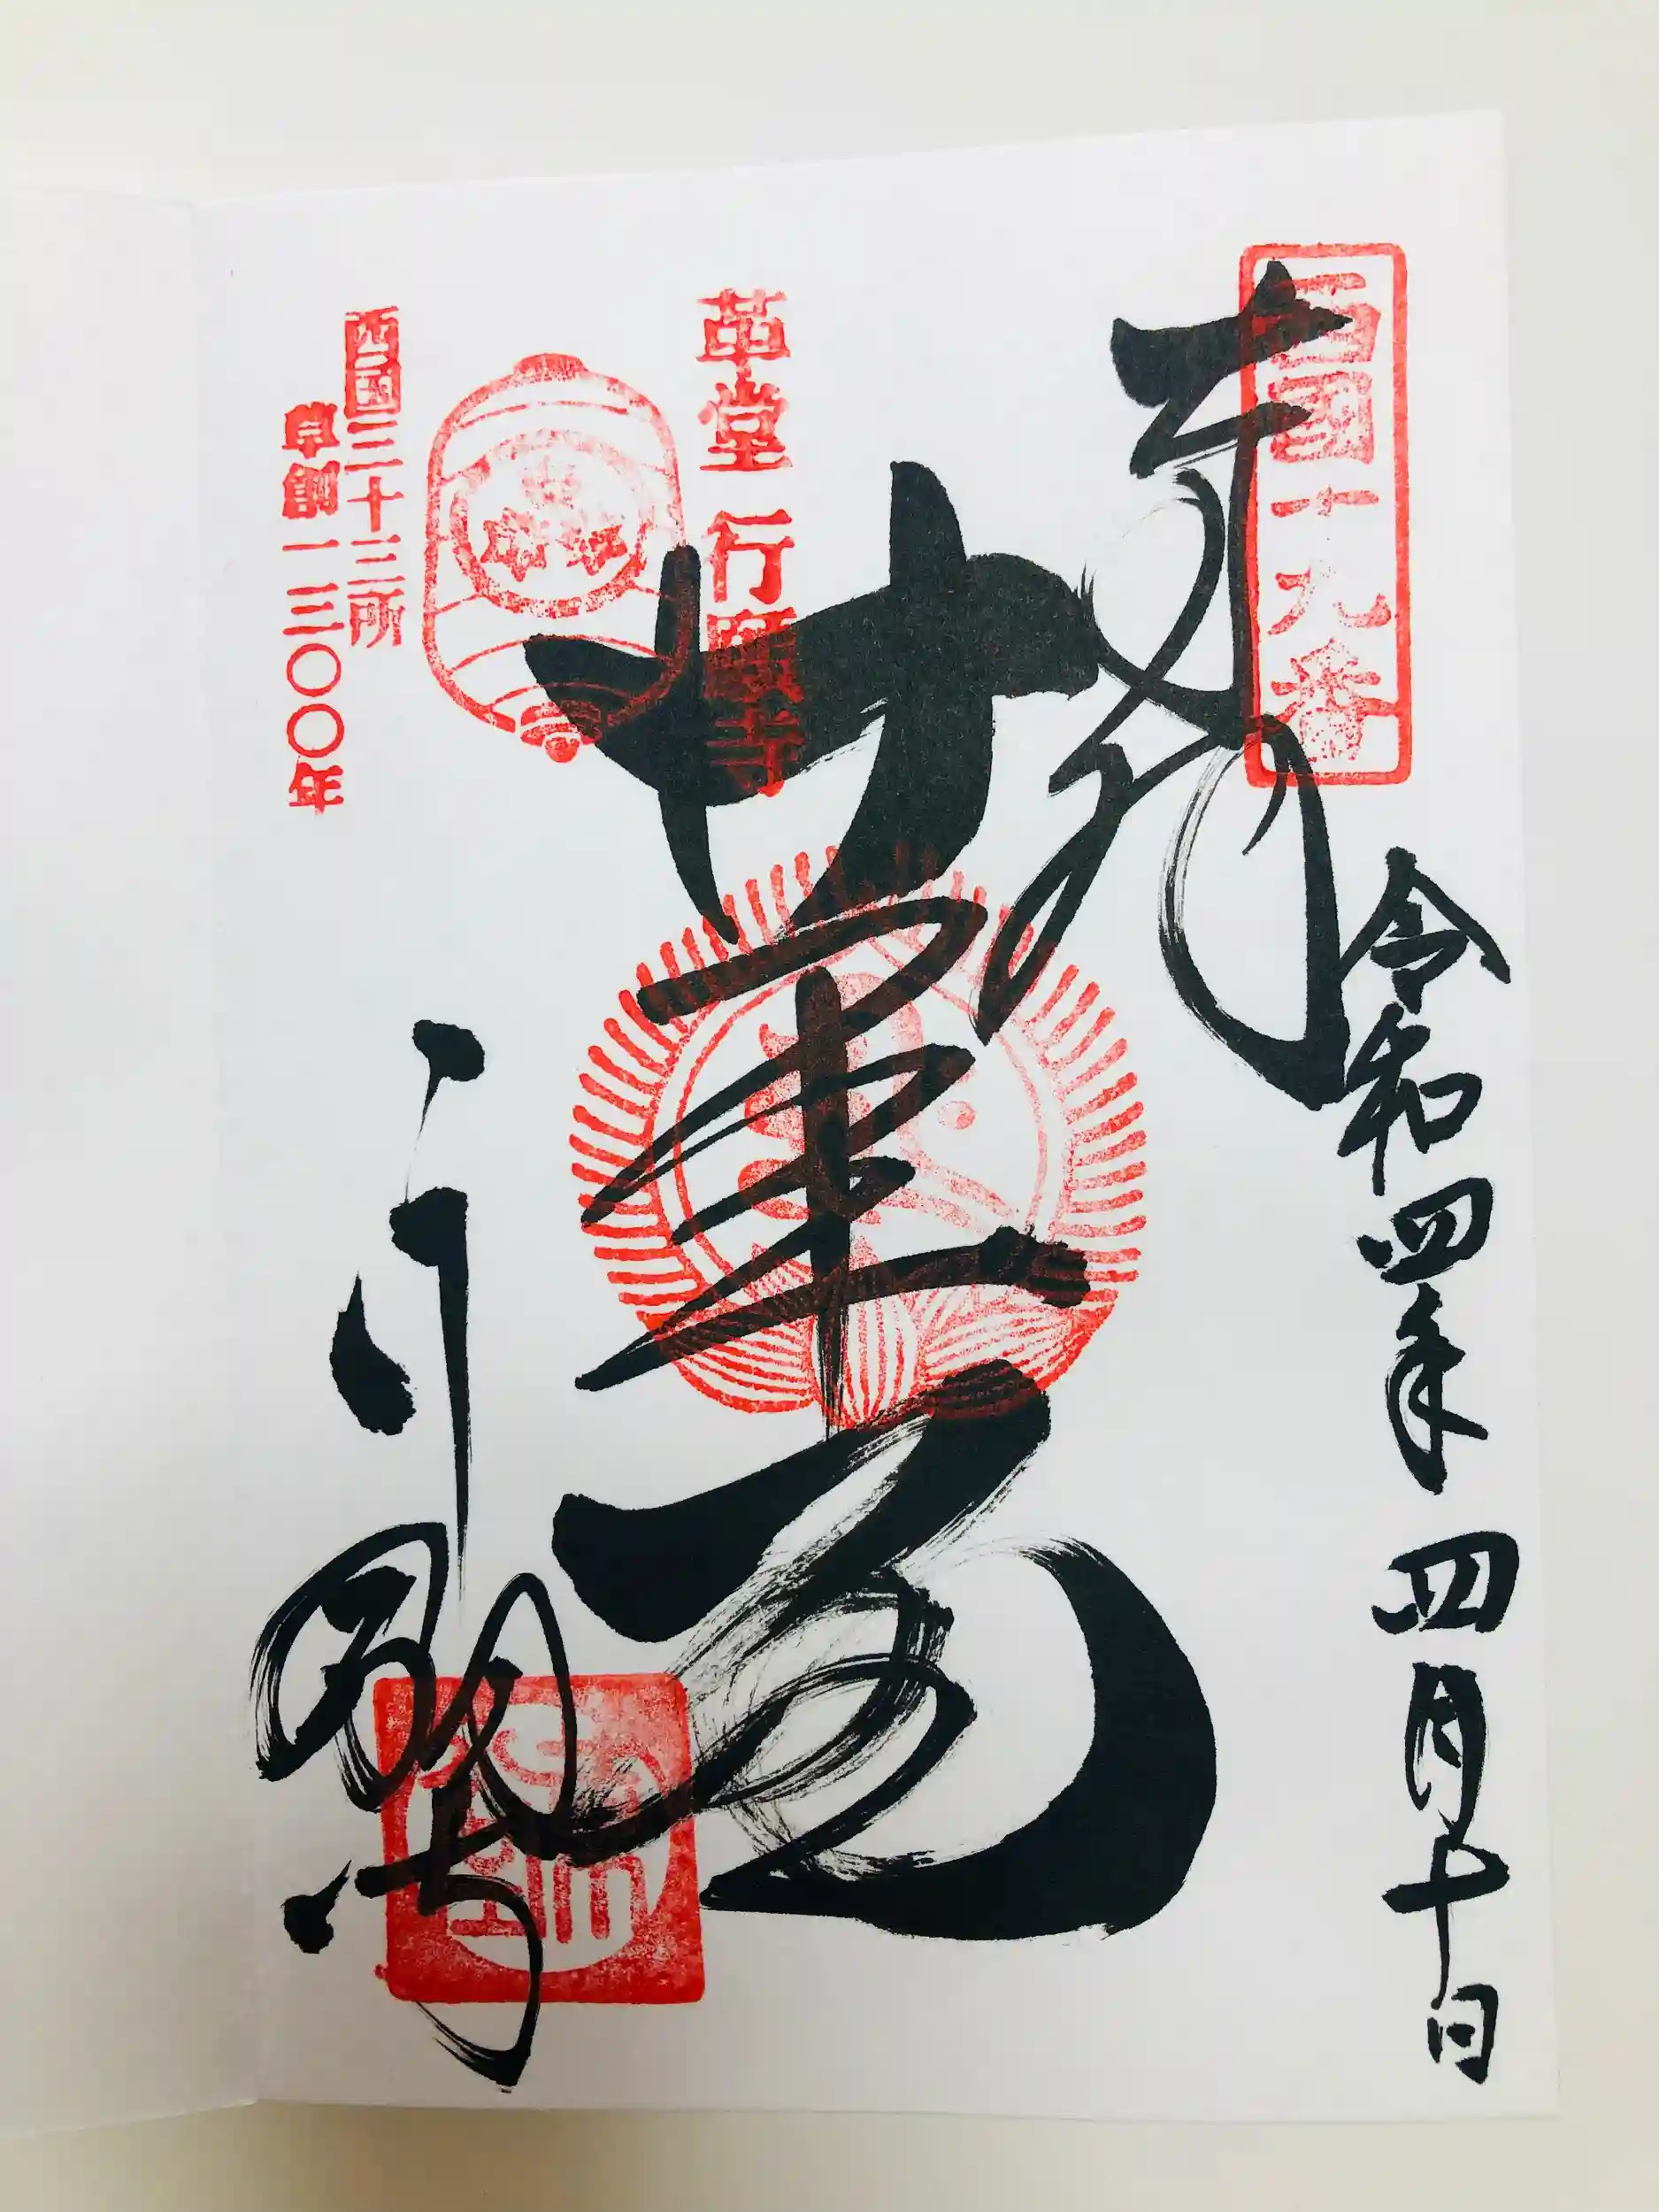 西國十九番
奉拝
令和四年四月十日
革堂 行願寺
革堂
西国三十三所
草創一三〇〇年
行願寺